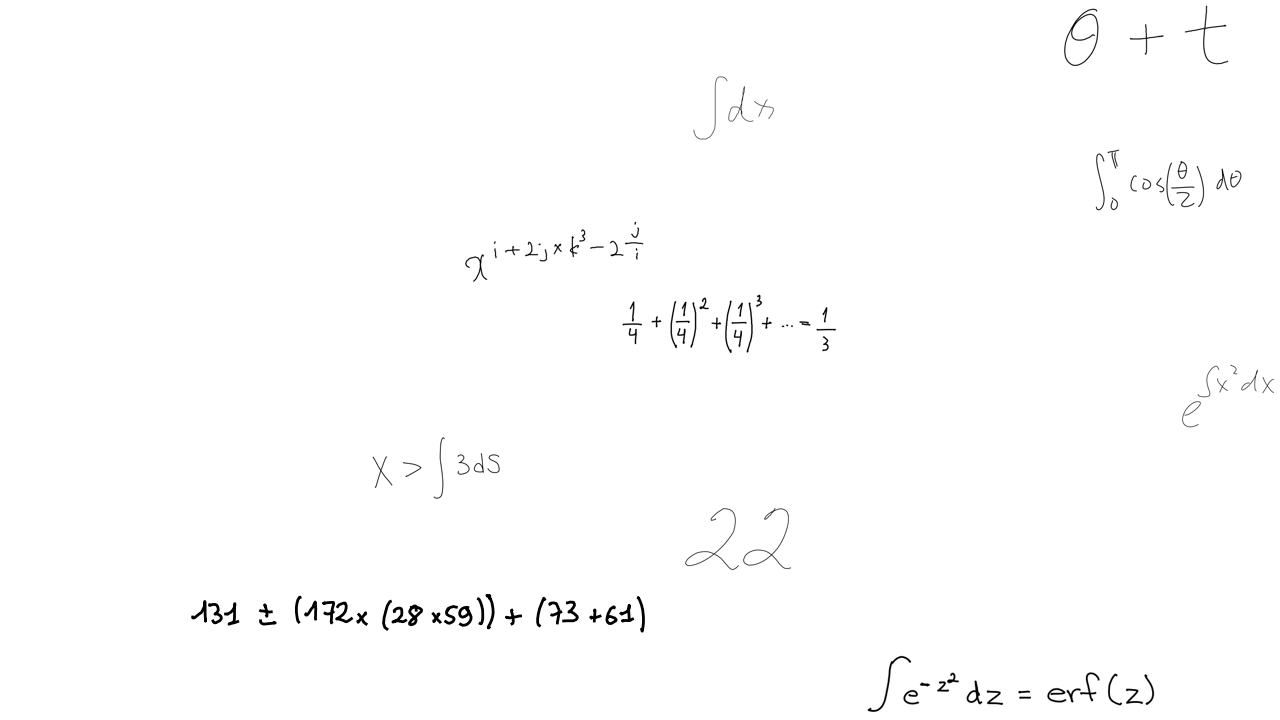 θ + t
∫dx
∫₀^π cos(θ/2) dθ
x^{i + 2j × k³ − 2 j/i}
1/4 + (1/4)² + (1/4)³ + ... = 1/3
e^{∫x² dx}
X > ∫3dS
22
131 ± (172 × (28 × 59)) + (73 + 61)
∫e^{−z²} dz = erf(z)